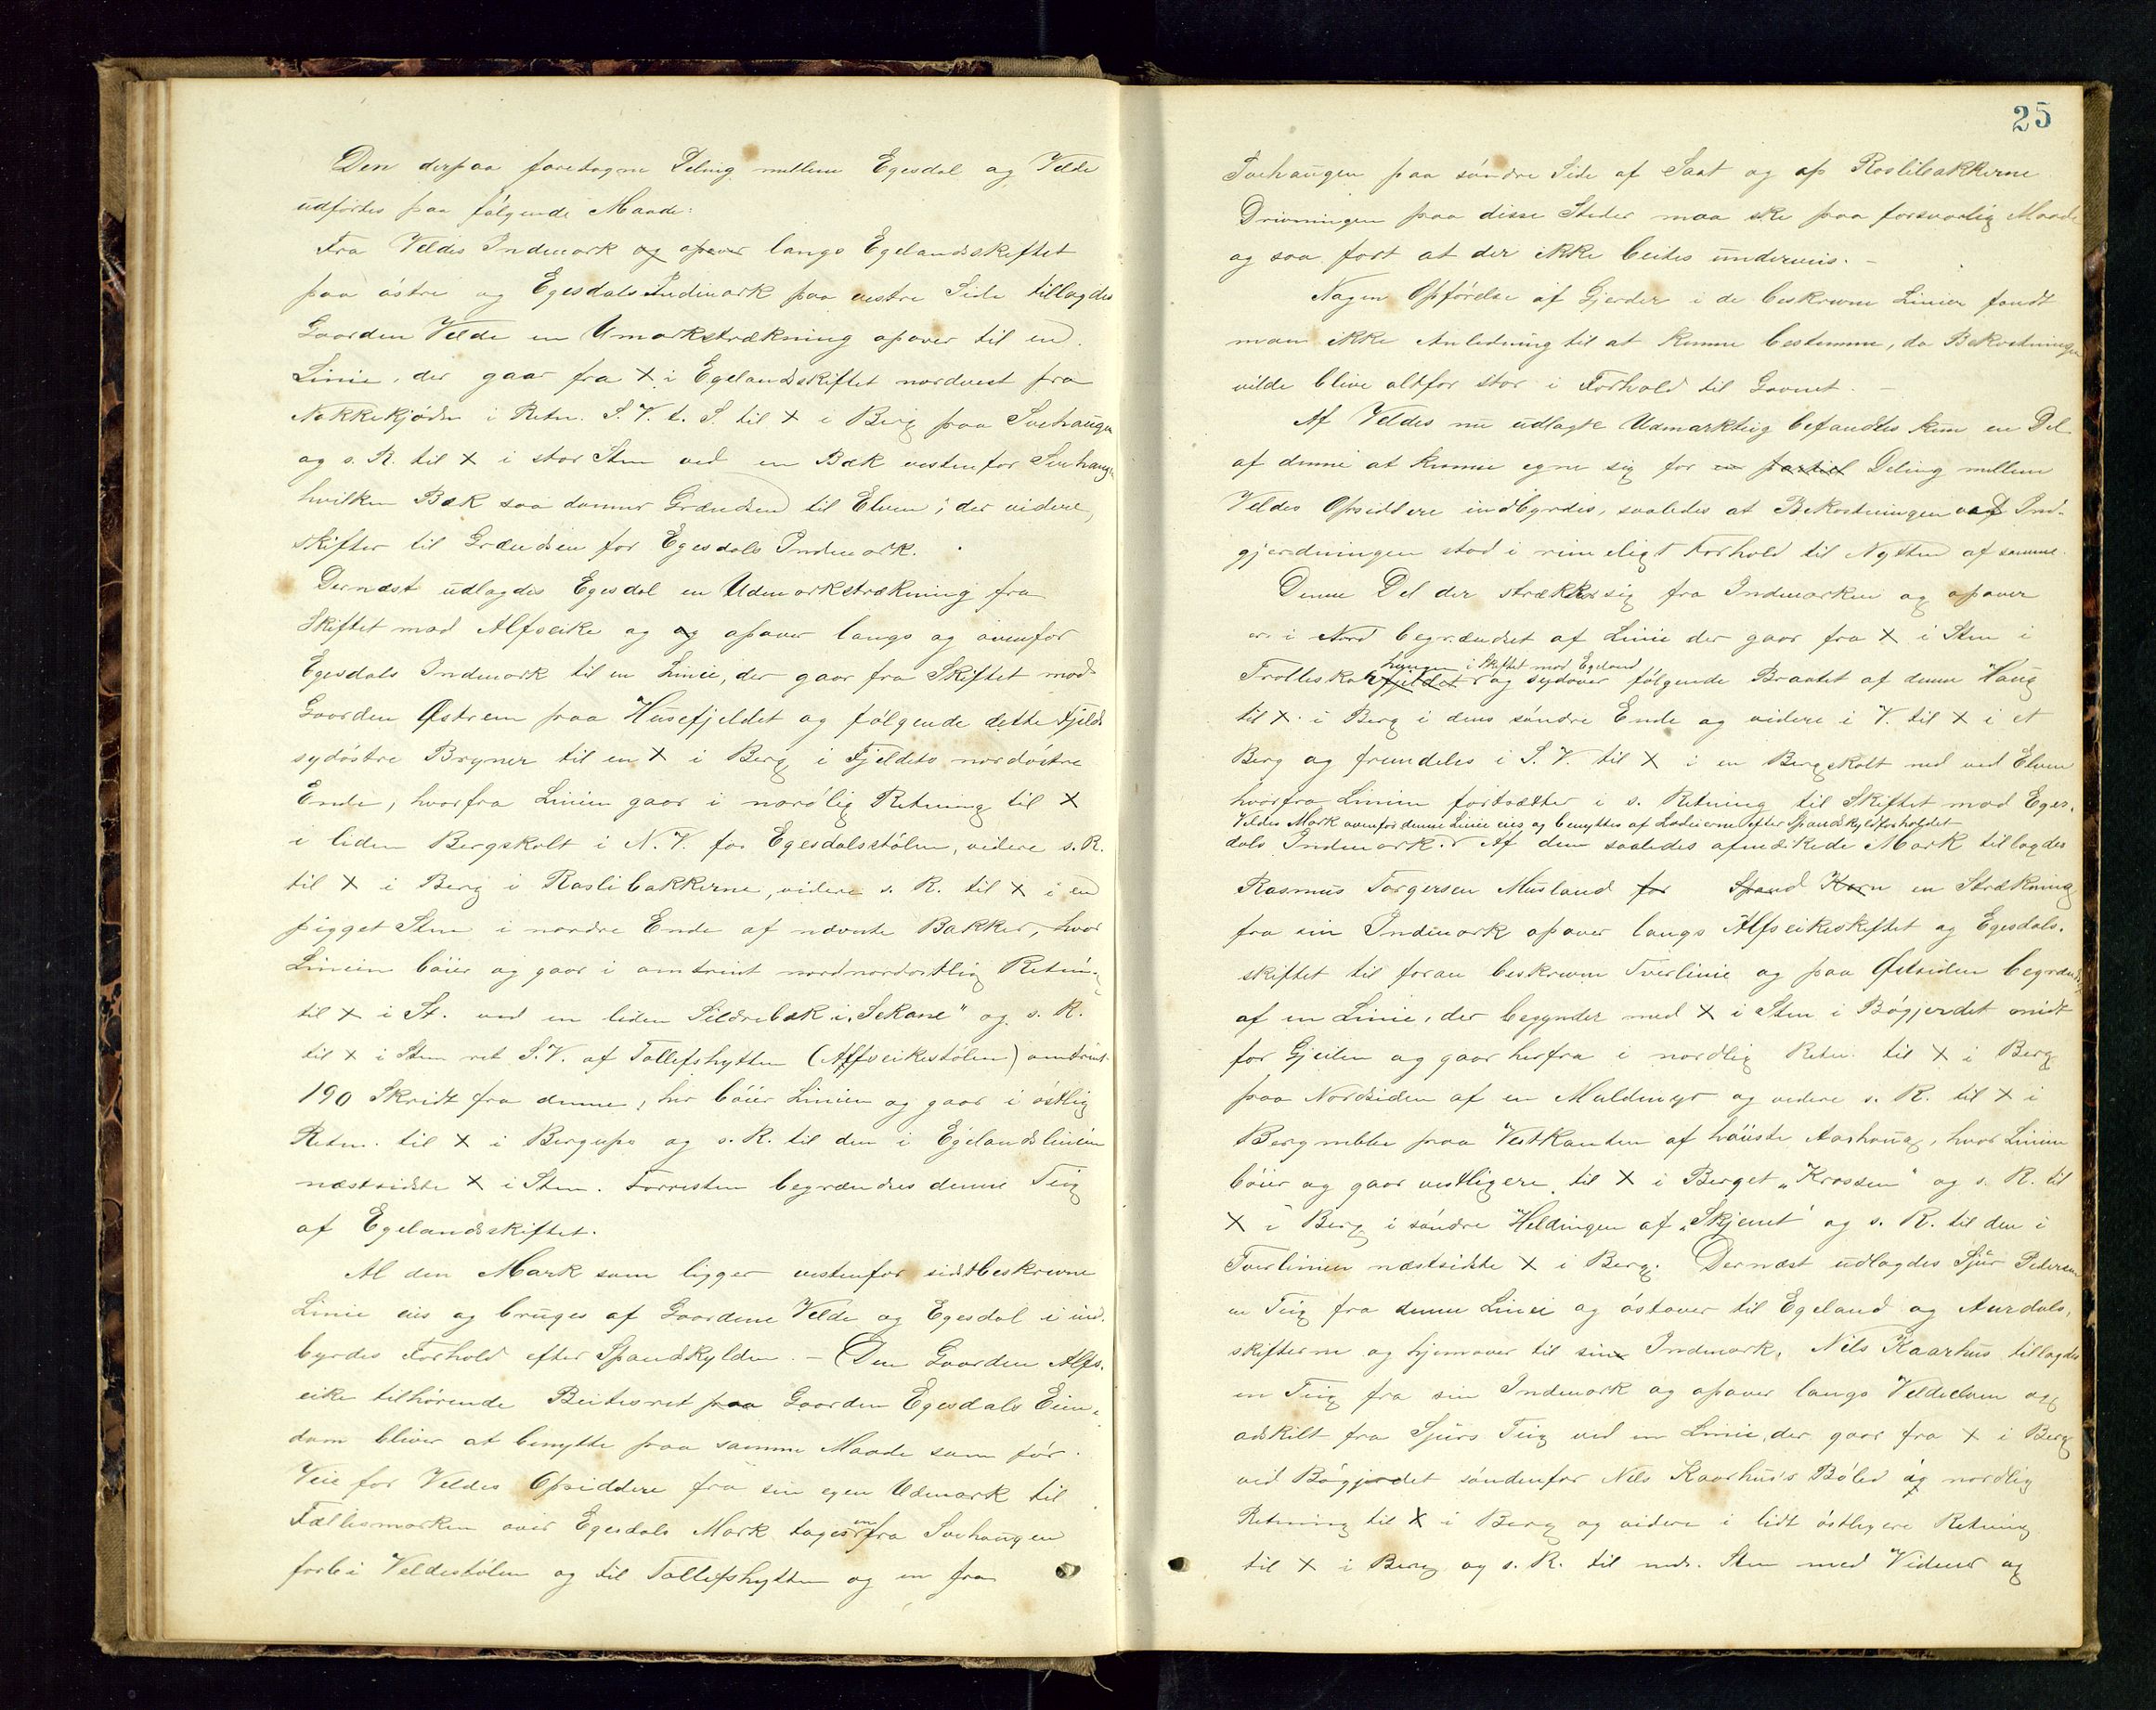 Den derpaa foretagne Deling mellem Egesdal og Velde
udførtes paa følgende Maade:
Fra Veldes Indmark og opover langs Egelandsskiftet
paa østre og Egesdals Indmark paa vestre Side tillagdes
Gaarden Velde en Umarkstrækning opover til en
Linie, der gaar fra X i Egelandskiftet nordvest fra
Nøkkekjødn i Retn. S. V. t. S. til X i Berg paa Svehaugen
og s. R. til X i stor Sten ved en Bæk vestenfor Svehaugen
hvilken Bæk saa danner Grændsen til Elven; der videre
skifter til Grændsen for Egesdals Indmark.
Dernæst udlagdes Egesdal en Udmarkstrækning fra
Skiftet mod Alfseike og og opover langs og ovenfor
Egesdals Indmark til en Linie, der gaar fra Skiftet mod
Gaarden Østrem paa Husefjeldet og følgende dette Fjelds
sydøstre Bryner til en X i Berg i Fjeldets nordøstre
Ende, hvorfra Linien gaar i nordlig Retning til X
i liden Bergskolt i N. V. for Egesdalsstølen, videre s. R.
til X i Berg i Raslibakkerne, videre s. R. til X i en
pigget Sten i nordre Ende af nævnte Bakker, hvor
Linien bøier og gaar i omtrent nordnordostlig Retning
til X i St. ved en liden Sildrebæk i "Sekane" og s. R.
til X i Sten ret S. V. af Tollefshytten (Alfseikestølen) omtrent
190 Skridt fra denne, her bøier Linien og gaar i østlig
Retn. til X i Bergups og s. R. til den i Egelandslinien
næstsidste X i Sten. Forresten begrændses denne Teig
af Egelandsskiftet.
Al den Mark som ligger vestenfor sidstbeskrevne
Linie eies og bruges af Gaardene Velde og Egesdal i ind-
byrdes Forhold efter Spandskylden. – Den Gaarden Alfs-
eike tilhørende Beitesret paa Gaarden Egesdals Eien-
dom bliver at benytte paa samme Maade som før.
Veie for Veldes Opsiddere fra sin egen Udmark til
Fællesmarken over Egesdals Mark tages en fra Svehaugen
forbi Veldestølen og til Tollefshytten og en fra
25
Svehaugen paa søndre Side af Saat og op Raslibakkerne
Drivningen paa disse Steder maa ske paa forsvarlig Maade
og saa fort at der ikke beites underveis. –
Nogen Opførelse af Gjerder i de beskrevne Linier fandt
man ikke Anledning til at kunne bestemme, da Bekostningen
vilde blive altfor stor i Forhold til Gavnet. –
Af Veldes nu udlagte Udmarkteig befandtes kun en Del
af denne at kunne egne sig for en partiel Deling mellem
Veldes Opsiddere indbyrdes, saaledes at Bekostningen ved Ind-
gjerdningen stod i rimeligt Forhold til Nytten af samme.
Denne Del der strækker sig fra Indmarken og opover
er i Nord begrændset af Linie der gaar fra X i Sten i
haugen i Skiftet mod Egeland
Trolleskar fjeldet og sydover følgende Brautet af denne Haug
til X i Berg i dens søndre Ende og videre i V. til X i et
Berg og fremdeles i S. V. til X i en Bergskolt ned ved Elven
hvorfra Linien fortsætter i s. Retning til Skiftet mod Eges-
Veldes Mark ovenfor denne Linie eies og benyttes af Lodeierne efter Spandskyldforholdet
dals Indmark. Af den saaledes afmærkede Mark tillagdes
Rasmus Torgersen Musland for Spand Korn en Strækning
fra sin Indmark opover langs Alfseikeskiftet og Egesdals-
skiftet til foran beskrevne Tverlinie og paa Østsiden begrændset
af en Linie, der begynder med X i Sten i Bøgjerdet midt
for Gjeilen og gaar herfra i nordlig Retn. til X i Berg
paa Nordsiden af en Muldmyr og videre s. R. til X i
Bergnebbe paa Vestkanten af høieste Aashaug, hvor Linien
bøier og gaar vestligere til X i Berget "Krossen" og s. R. til
X i Berg i søndre Heldingen af "Skjeret" og s. R. til den i
Tverlinien næstsidste X i Berg. Dernæst udlagdes Sjur Pedersen
en Teig fra denne Linie og østover til Egeland og Aurdals-
skifterne og hjemover til sin Indmark. Nils Kaarhus tillagdes
en Teig fra sin Indmark og opover langs Veldeelven og
adskilt fra Sjurs Teig ved en Linie, der gaar fra X i Berg
ved Bøgjerdet søndenfor Nils Kaarhus's Bøled og nordlig
Retning til X i Berg og videre i lidt østligere Retning
til X i Berg og s. R. til neds. Sten med Vidner og